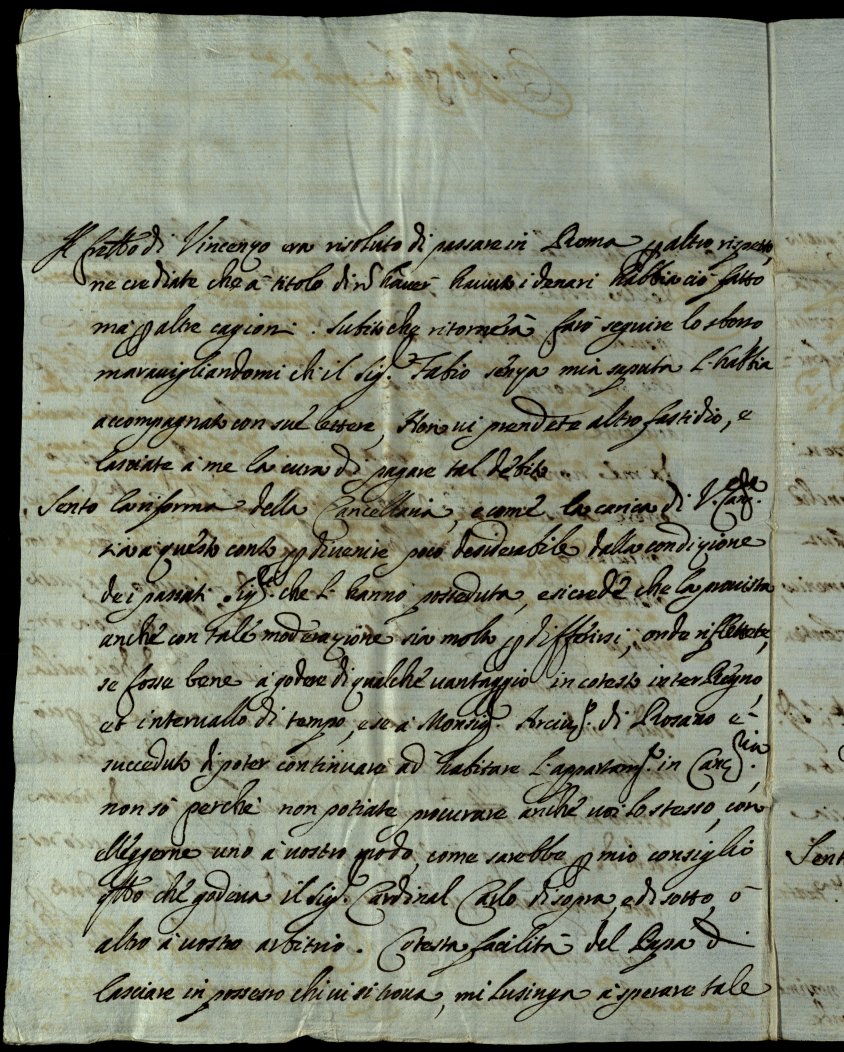 Il fratello di Vincenzo era risoluto di passare in Roma p altro rispetto,
ne crediate che à titolo di nō haver havuto i denari habbia ciò fatto
mà p altre cagioni. Subito che ritornerà farò seguire lo sborso
maravigliandomi ch'il Sig.r Fabio senza mia saputa l'habbia
accompagnato con sue lettere, Non vi prendete altro fastidio, e
lasciate à me la cura di pagare tal debito
Sento la riforma della Cancellaria, e come la carica di V. Canc.
sia à questo conto p divenire poco desiderabile dalla condizione
dei passati Sig.ri che l'hanno posseduta, e si crede che la provista
anche con tale moderazione sia molto p differirsi, onde riflettete,
se fosse bene à godere di qualche vantaggio in cotesto inter Regno,
et intervallo di tempo, e se à Monsig.r Arciu.o di Rosano è
succeduto di poter continuare ad habitare l'appartam.to in Canc.ria,
non sò perche non potiate procurare anche voi lo stesso, con
eleggerne uno à vostro modo, come sarebbe p mio consiglio
qllo che godeva il Sig.r Cardinal Carlo di sopra, e di sotto, ò
altro à vostro arbitrio. Cotesta facilità del Papa di
lasciare in possesso chi vi si trova, mi lusinga à sperare tale
Sent